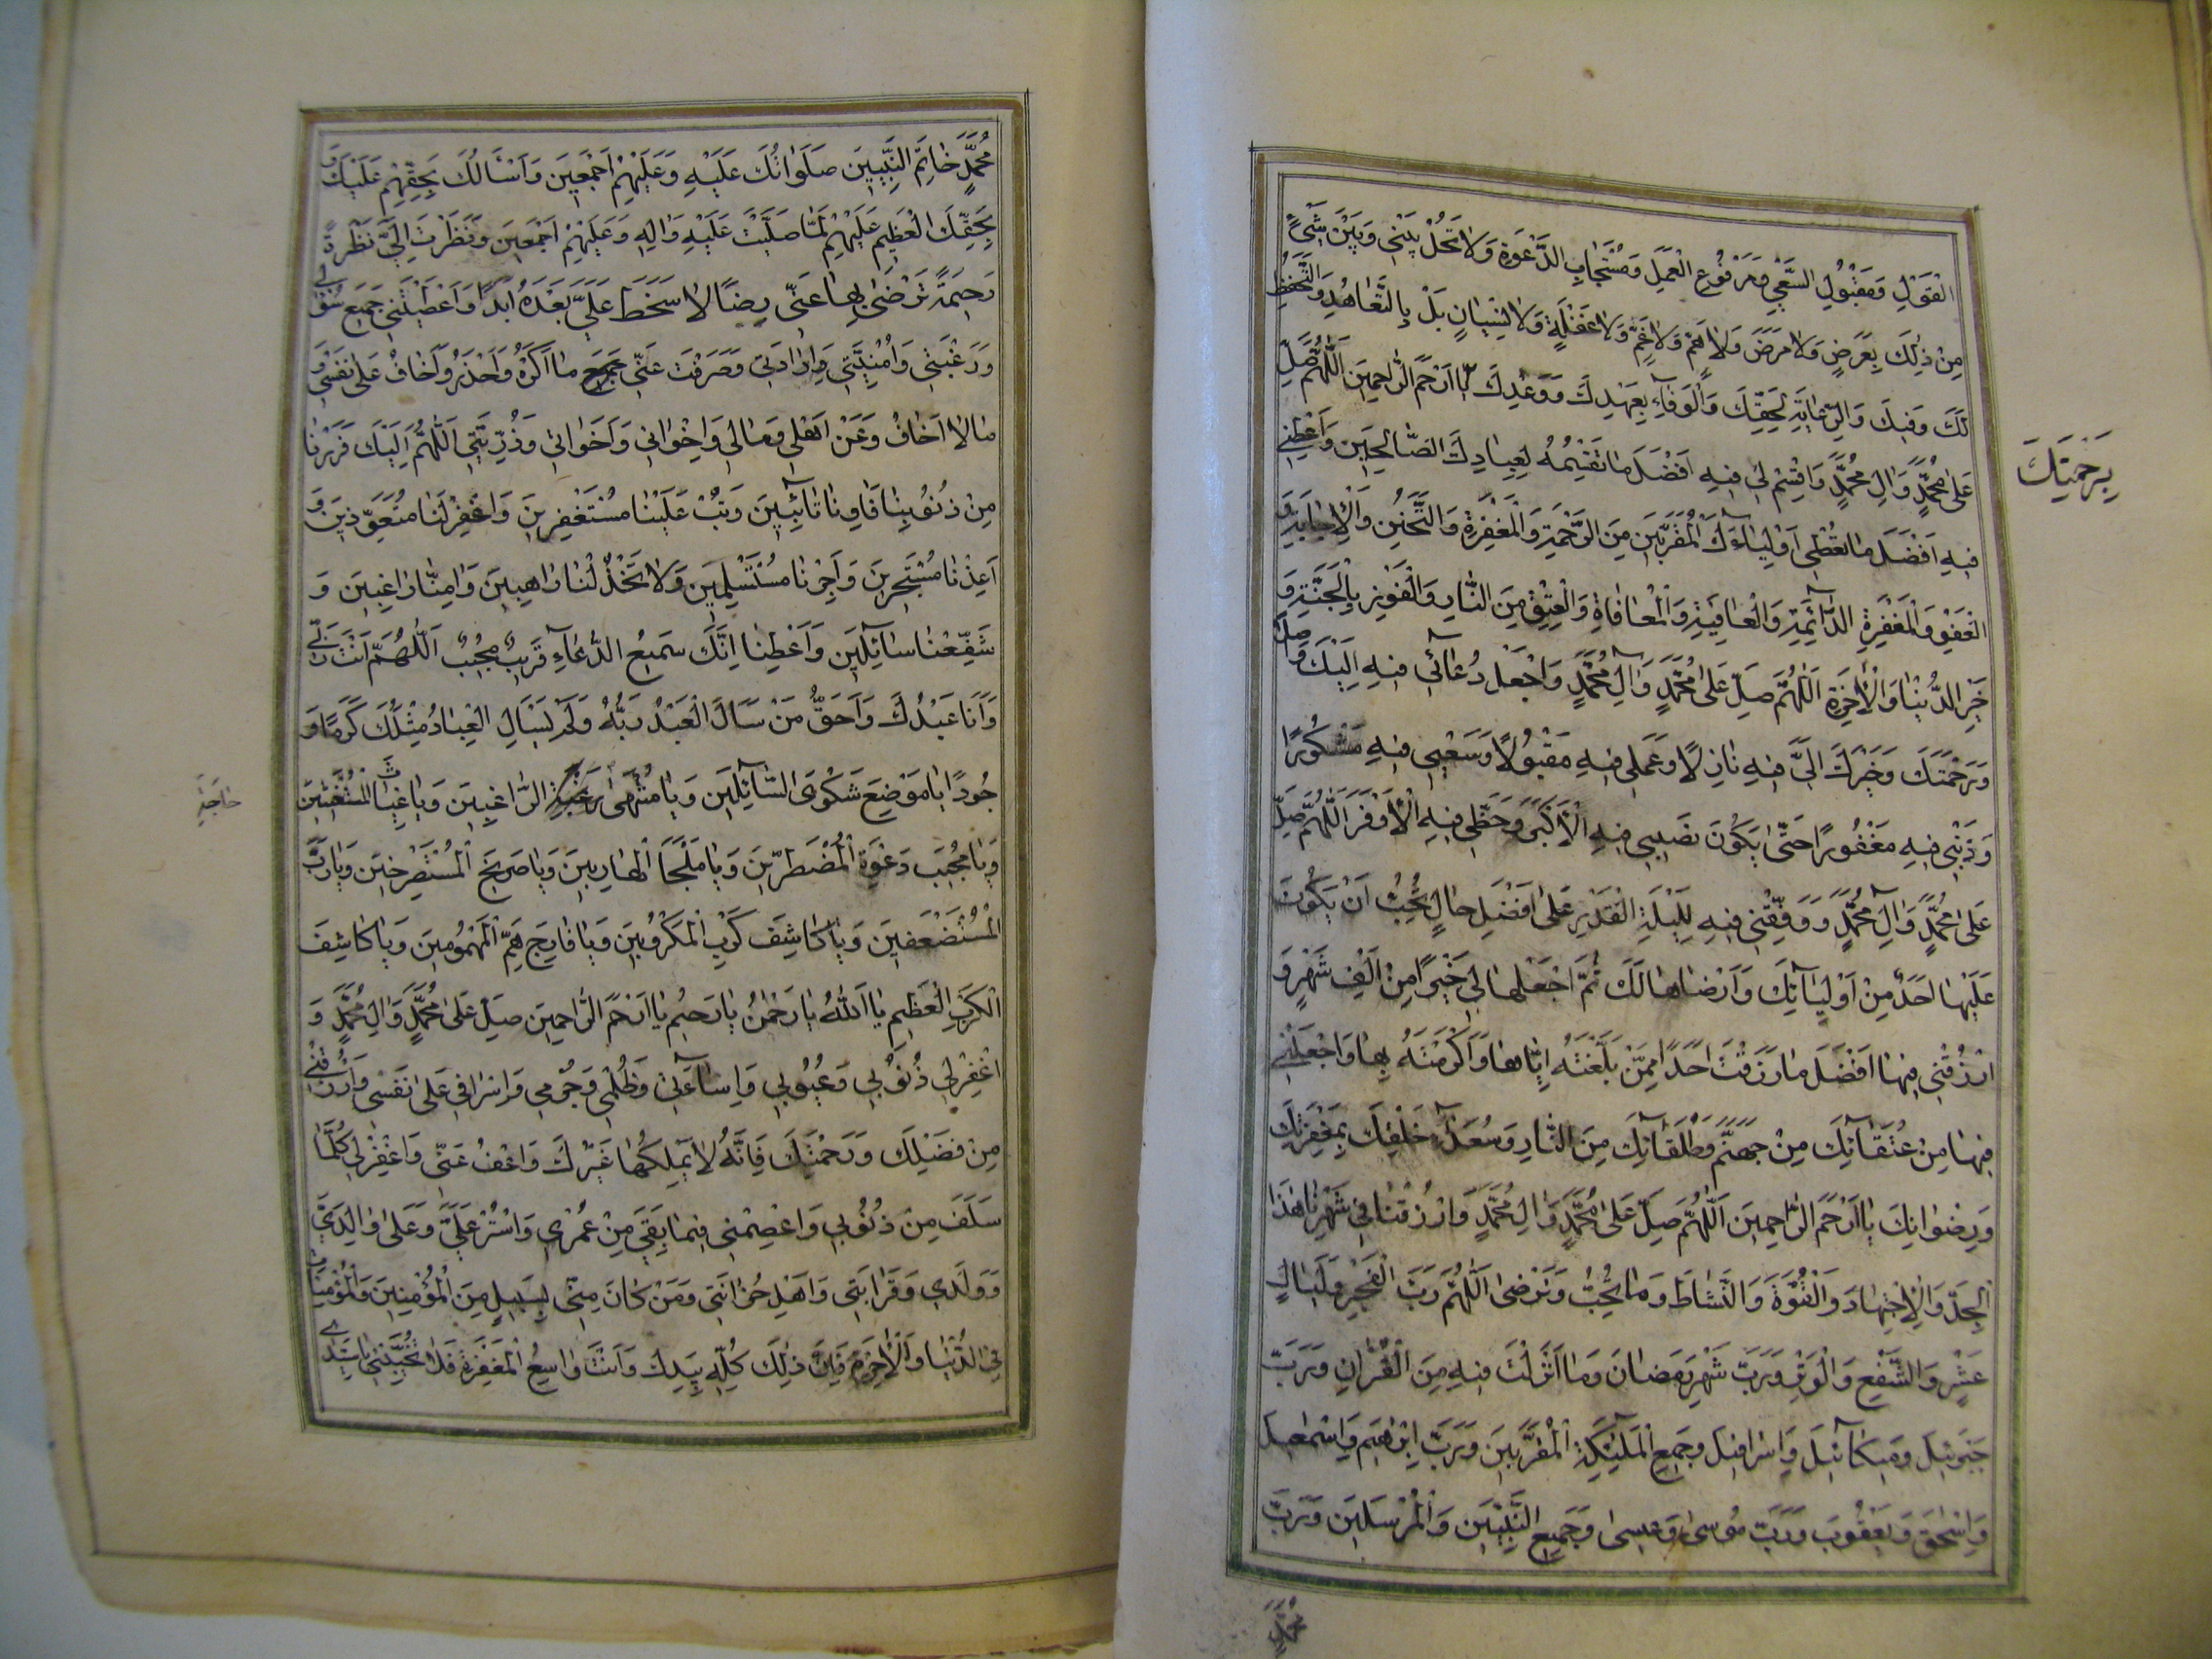 الْقَوْلِ وَمَقْبُولِ السَّعْيِ وَمَرْفُوعِ الْعَمَلِ وَمُسْتَجَابِ الدَّعْوَةِ وَلَا تَحُلْ بَيْنِي وَبَيْنَ شَيْءٍ
مِنْ ذٰلِكَ بِعَرَضٍ وَلَا مَرَضٍ وَلَا هَمٍّ وَلَا غَمٍّ وَلَا غَفْلَةٍ وَلَا نِسْيَانٍ بَلْ بِالتَّعَاهُدِ وَالتَّحَفُّظِ
لَكَ وَفِيكَ وَالرِّعَايَةِ لِحَقِّكَ وَالْوَفَاءِ بِعَهْدِكَ وَوَعْدِكَ يَا اَرْحَمَ الرَّاحِمِينَ اَللّٰهُمَّ صَلِّ
بِرَحْمَتِكَ
عَلىٰ مُحَمَّدٍ وَاٰلِ مُحَمَّدٍ وَاقْسِمْ لِي فِيهِ اَفْضَلَ مَا تَقْسِمُهُ لِعِبَادِكَ الصَّالِحِينَ وَاَعْطِنِي
فِيهِ اَفْضَلَ مَا تُعْطِي اَوْلِيَاءَكَ الْمُقَرَّبِينَ مِنَ الرَّحْمَةِ وَالْمَغْفِرَةِ وَالتَّحَنُّنِ وَالْاِجَابَةِ وَ
الْعَفْوِ وَالْمَغْفِرَةِ الدَّائِمَةِ وَالْعَافِيَةِ وَالْمُعَافَاةِ وَالْعِتْقِ مِنَ النَّارِ وَالْفَوْزِ بِالْجَنَّةِ وَ
خَيْرِ الدُّنْيَا وَالْاٰخِرَةِ اَللّٰهُمَّ صَلِّ عَلىٰ مُحَمَّدٍ وَاٰلِ مُحَمَّدٍ وَاجْعَلْ دُعَائِي فِيهِ اِلَيْكَ وَاصِلًا
وَرَحْمَتَكَ وَخَيْرَكَ اِلَيَّ فِيهِ نَازِلًا وَعَمَلِي فِيهِ مَقْبُولًا وَسَعْيِي فِيهِ مَشْكُورًا
وَذَنْبِي فِيهِ مَغْفُورًا حَتّٰى يَكُونَ نَصِيبِي فِيهِ الْاَكْبَرَ وَحَظِّي فِيهِ الْاَوْفَرَ اَللّٰهُمَّ صَلِّ
عَلىٰ مُحَمَّدٍ وَاٰلِ مُحَمَّدٍ وَوَفِّقْنِي فِيهِ لِلَيْلَةِ الْقَدْرِ عَلىٰ اَفْضَلِ حَالٍ تُحِبُّ اَنْ يَكُونَ
عَلَيْهَا اَحَدٌ مِنْ اَوْلِيَائِكَ وَاَرْضَاهَا لَكَ ثُمَّ اجْعَلْهَا لِي خَيْرًا مِنْ اَلْفِ شَهْرٍ وَ
ارْزُقْنِي فِيهَا اَفْضَلَ مَا رَزَقْتَ اَحَدًا مِمَّنْ بَلَّغْتَهُ اِيَّاهَا وَاَكْرَمْتَهُ بِهَا وَاجْعَلْنِي
فِيهَا مِنْ عُتَقَائِكَ مِنْ جَهَنَّمَ وَطُلَقَائِكَ مِنَ النَّارِ وَسُعَدَاءِ خَلْقِكَ بِمَغْفِرَتِكَ
وَرِضْوَانِكَ يَا اَرْحَمَ الرَّاحِمِينَ اَللّٰهُمَّ صَلِّ عَلىٰ مُحَمَّدٍ وَاٰلِ مُحَمَّدٍ وَارْزُقْنَا فِي شَهْرِنَا هٰذَا
الْجِدَّ وَالْاِجْتِهَادَ وَالْقُوَّةَ وَالنَّشَاطَ وَمَا تُحِبُّ وَتَرْضىٰ اَللّٰهُمَّ رَبَّ الْفَجْرِ وَلَيَالٍ
عَشْرٍ وَالشَّفْعِ وَالْوَتْرِ وَرَبَّ شَهْرِ رَمَضَانَ وَمَا اَنْزَلْتَ فِيهِ مِنَ الْقُرْاٰنِ وَرَبَّ
جَبْرَئِيلَ وَمِيكَائِيلَ وَاِسْرَافِيلَ وَجَمِيعِ الْمَلٰئِكَةِ الْمُقَرَّبِينَ وَرَبَّ اِبْرٰهِيمَ وَاِسْمٰعِيلَ
وَاِسْحٰقَ وَيَعْقُوبَ وَرَبَّ مُوسىٰ وَعِيسىٰ وَجَمِيعِ النَّبِيِّينَ وَالْمُرْسَلِينَ وَرَبَّ
مُحَمَّدٍ
مُحَمَّدٍ خَاتَمِ النَّبِيِّينَ صَلَوَاتُكَ عَلَيْهِ وَعَلَيْهِمْ اَجْمَعِينَ وَاَسْاَلُكَ بِحَقِّهِمْ عَلَيْكَ وَ
بِحَقِّكَ الْعَظِيمِ عَلَيْهِمْ لَمَّا صَلَّيْتَ عَلَيْهِ وَاٰلِهِ وَعَلَيْهِمْ اَجْمَعِينَ وَنَظَرْتَ اِلَيَّ نَظْرَةً
رَحِيمَةً تَرْضىٰ بِهَا عَنِّي رِضًا لَا سَخَطَ عَلَيَّ بَعْدَهُ اَبَدًا وَاَعْطَيْتَنِي جَمِيعَ سُؤْلِي
وَرَغْبَتِي وَاُمْنِيَّتِي وَاِرَادَتِي وَصَرَفْتَ عَنِّي جَمِيعَ مَا اَكْرَهُ وَاَحْذَرُ وَاَخَافُ عَلىٰ نَفْسِي وَ
مَا لَا اَخَافُ وَعَنْ اَهْلِي وَمَالِي وَاِخْوَانِي وَاَخَوَاتِي وَذُرِّيَّتِي اَللّٰهُمَّ اِلَيْكَ فَرَرْنَا
مِنْ ذُنُوبِنَا فَاٰوِنَا تَائِبِينَ وَتُبْ عَلَيْنَا مُسْتَغْفِرِينَ وَاغْفِرْ لَنَا مُتَعَوِّذِينَ وَ
اَعِذْنَا مُسْتَجِيرِينَ وَاَجِرْنَا مُسْتَسْلِمِينَ وَلَا تَخْذُلْنَا رَاهِبِينَ وَاٰمِنَّا رَاغِبِينَ وَ
شَفِّعْنَا سَائِلِينَ وَاَعْطِنَا اِنَّكَ سَمِيعُ الدُّعَاءِ قَرِيبٌ مُجِيبٌ اَللّٰهُمَّ اَنْتَ رَبِّي
وَاَنَا عَبْدُكَ وَاَحَقُّ مَنْ سَاَلَ الْعَبْدُ رَبَّهُ وَلَمْ يَسْاَلِ الْعِبَادُ مِثْلَكَ كَرَمًا وَ
جُودًا يَا مَوْضِعَ شَكْوَى السَّائِلِينَ وَيَا مُنْتَهىٰ الرَّاغِبِينَ وَيَا غِيَاثَ الْمُسْتَغِيثِينَ
حَاجَةِ
وَيَا مُجِيبَ دَعْوَةِ الْمُضْطَرِّينَ وَيَا مَلْجَاَ الْهَارِبِينَ وَيَا صَرِيخَ الْمُسْتَصْرِخِينَ وَيَا رَبَّ
الْمُسْتَضْعَفِينَ وَيَا كَاشِفَ كَرْبِ الْمَكْرُوبِينَ وَيَا فَارِجَ هَمِّ الْمَهْمُومِينَ وَيَا كَاشِفَ
الْكَرْبِ الْعَظِيمِ يَا اَللّٰهُ يَا رَحْمٰنُ يَا رَحِيمُ يَا اَرْحَمَ الرَّاحِمِينَ صَلِّ عَلىٰ مُحَمَّدٍ وَاٰلِ مُحَمَّدٍ وَ
اغْفِرْ لِي ذُنُوبِي وَعُيُوبِي وَاِسَاءَتِي وَظُلْمِي وَجُرْمِي وَاِسْرَافِي عَلىٰ نَفْسِي وَارْزُقْنِي
مِنْ فَضْلِكَ وَرَحْمَتِكَ فَاِنَّهُ لَا يَمْلِكُهَا غَيْرُكَ وَاعْفُ عَنِّي وَاغْفِرْ لِي كُلَّمَا
سَلَفَ مِنْ ذُنُوبِي وَاعْصِمْنِي فِيمَا بَقِيَ مِنْ عُمْرِي وَاسْتُرْ عَلَيَّ وَعَلىٰ وَالِدَيَّ
وَوَلَدِي وَقَرَابَتِي وَاَهْلِ حُزَانَتِي وَمَنْ كَانَ مِنِّي بِسَبِيلٍ مِنَ الْمُؤْمِنِينَ وَالْمُؤْمِنَاتِ
فِي الدُّنْيَا وَالْاٰخِرَةِ فَاِنَّ ذٰلِكَ كُلَّهُ بِيَدِكَ وَاَنْتَ وَاسِعُ الْمَغْفِرَةِ فَلَا تُخَيِّبْنِي يَا سَيِّدِي